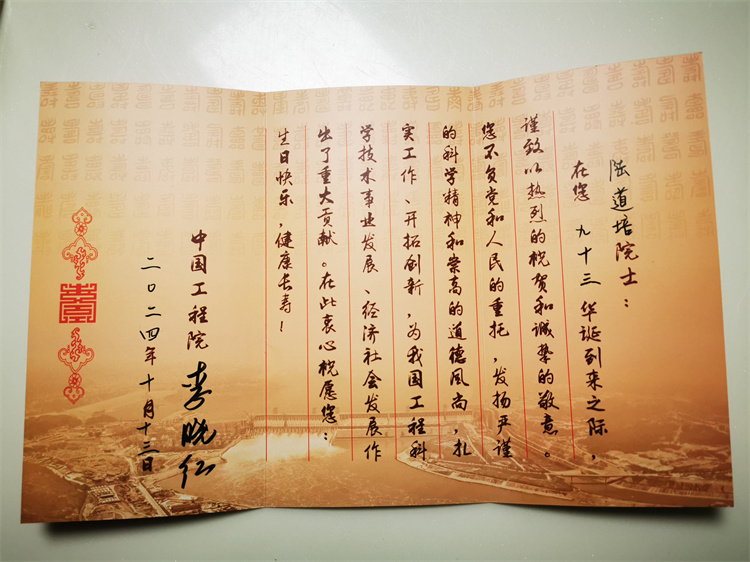 陆道培院士：
在您 九十三 华诞到来之际，
谨致以热烈的祝贺和诚挚的敬意。
您不负党和人民的重托，发扬严谨
的科学精神和崇高的道德风尚，扎
实工作、开拓创新，为我国工程科
学技术事业发展、经济社会发展作
出了重大贡献。在此衷心祝愿您：
生日快乐，健康长寿！
中国工程院 李晓红
二〇二四年十月十三日